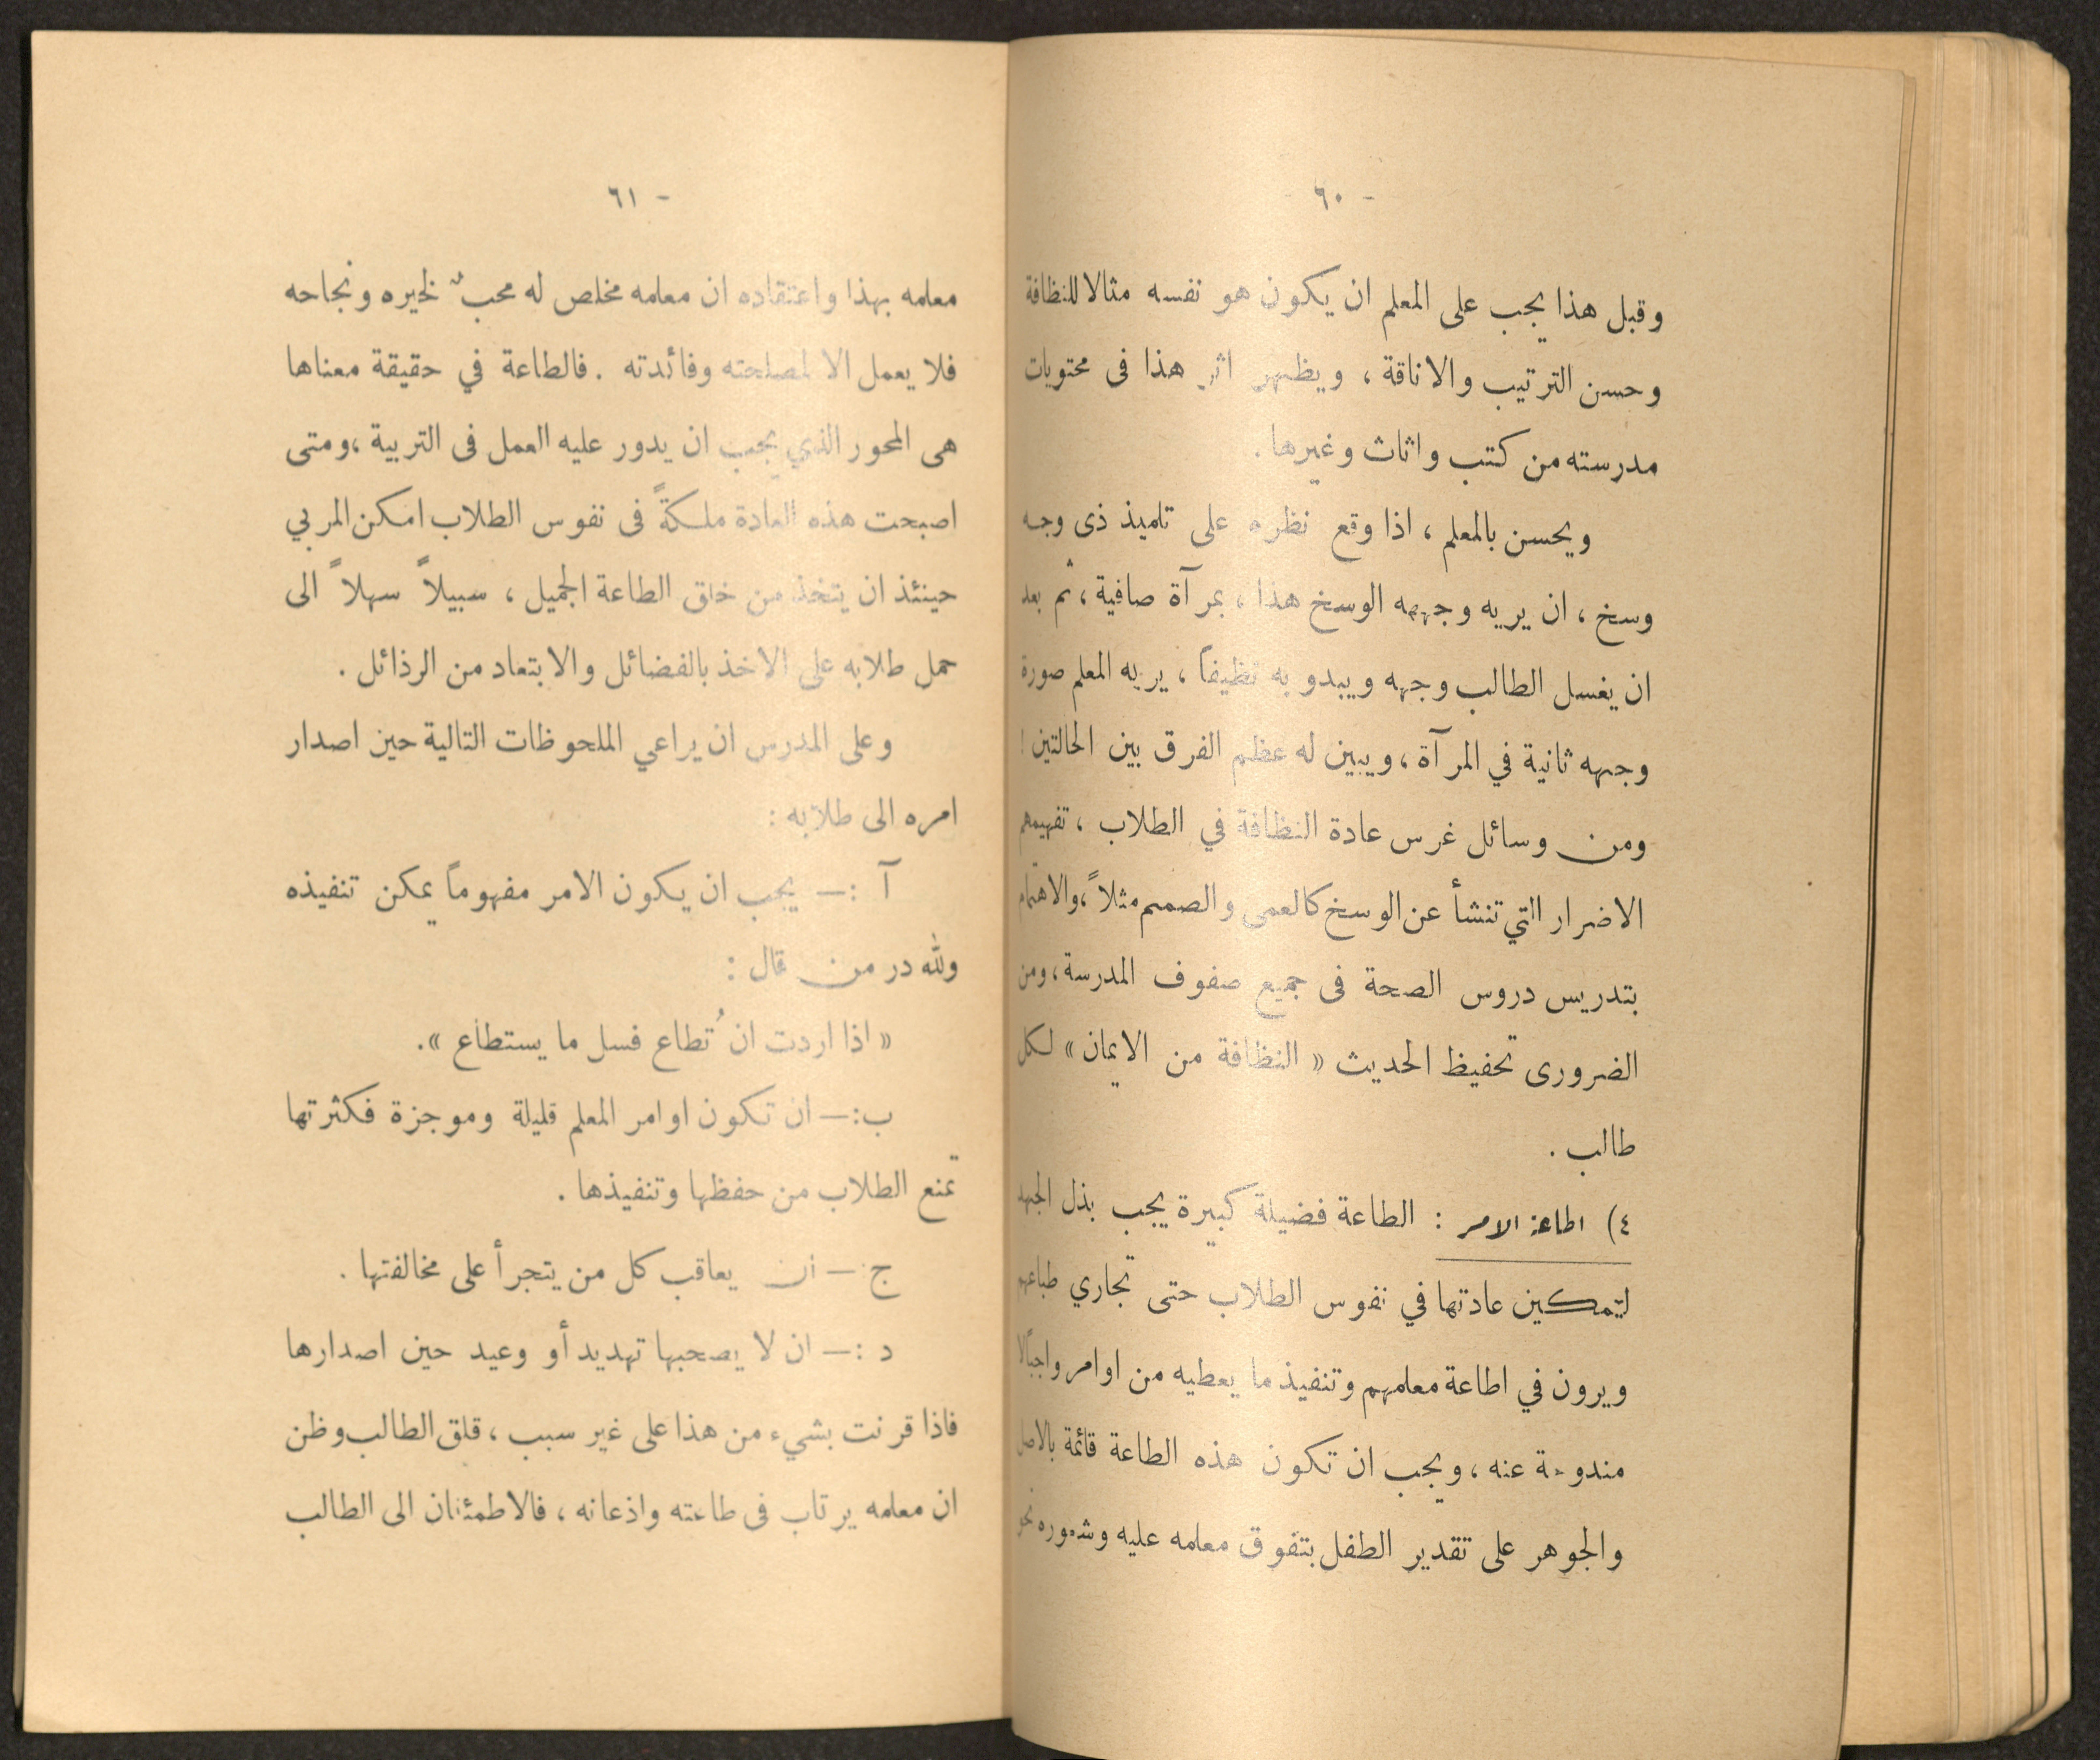 - ٦٠
وقبل هذا يجب على المعلم ان يكون هو نفسه مثالا للنظافة
وحسن الترتيب والاناقة ، ويظهر اثر هذا فى محتويات
مدرسته من كتب واثاث وغيرها .
ويحسن بالمعلم ، اذا وقع نظره على تلميذ ذى وجه
وسخ ، ان يريه وجهه الوسخ هذا ، بمرآة صافية ، ثم بعد
ان يغسل الطالب وجهه ويبدو به نظيفاً ، يريه المعلم صورة
وجهه ثانية في المرآة ، ويبين له عظم الفرق بين الحالتين !
ومن وسائل غرس عادة النظافة في الطلاب ، تفهيمهم
الاضرار التي تنشأ عن الوسخ كالعمى والصمم مثلاً ، والاهتمام
بتدريس دروس الصحة فى جميع صفوف المدرسة ، ومن
الضرورى تحفيظ الحديث « النظافة من الايمان » لكل
طالب .
٤) اطاعة الامر : الطاعة فضيلة كبيرة يجب بذل الجهد
لتمكين عادتها في نفوس الطلاب حتى تجاري طباعهم
ويرون في اطاعة معلمهم وتنفيذ ما يعطيه من اوامر واجباً لا
مندوحة عنه ، ويجب ان تكون هذه الطاعة قائمة بالاصل
والجوهر على تقدير الطفل بتفوق معلمه عليه وشعوره نحو
- ٦١
معلمه بهذا واعتقاده ان معلمه مخلص له محبٌ لخيره ونجاحه
فلا يعمل الا لمصلحته وفائدته . فالطاعة في حقيقة معناها
هى المحور الذي يجب ان يدور عليه العمل فى التربية ، ومتى
اصبحت هذه العادة ملكةً فى نفوس الطلاب امكن المربي
حينئذ ان يتخذ من خلق الطاعة الجميل ، سبيلاً سهلاً الى
حمل طلابه على الاخذ بالفضائل والابتعاد من الرذائل .
وعلى المدرس ان يراعي الملحوظات التالية حين اصدار
امره الى طلابه :
آ :— يجب ان يكون الامر مفهوماً يمكن تنفيذه
ولله در من قال :
« اذا اردت ان تُطاع فسل ما يستطاع ».
ب :— ان تكون اوامر المعلم قليلة وموجزة فكثرتها
تمنع الطلاب من حفظها وتنفيذها .
ج :— ان يعاقب كل من يتجرأ على مخالفتها .
د :— ان لا يصحبها تهديد أو وعيد حين اصدارها
فاذا قرنت بشيء من هذا على غير سبب ، قلق الطالب وظن
ان معلمه يرتاب فى طاعته واذعانه ، فالاطمئنان الى الطالب